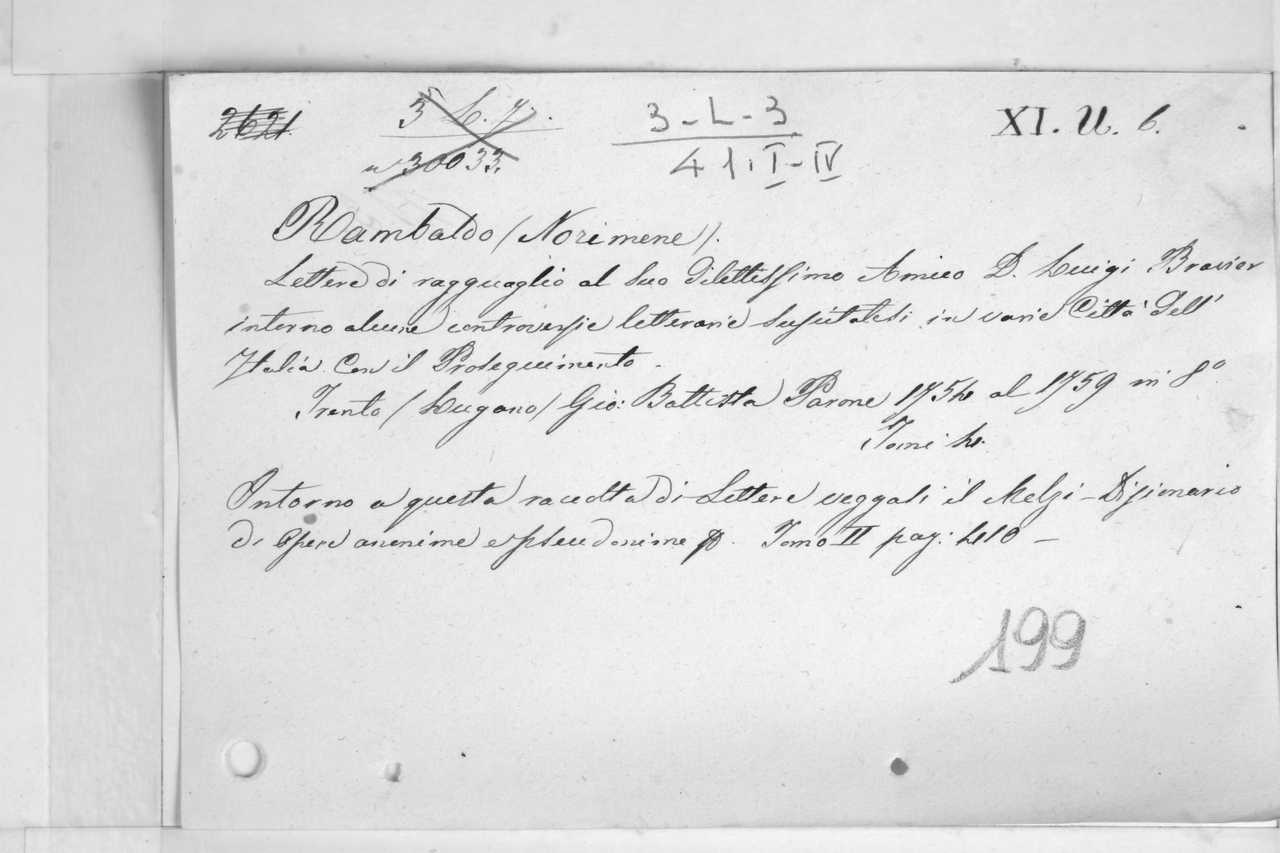 2621 3 L. 7. 3-L-3 XI. U. 6.
n 30033. 41. I-IV
Rambaldo (Norimene).
Lettere di ragguaglio al suo dilettissimo Amico D. Luigi Bravier
intorno alcune controversie letterarie suscitatesi in varie Città dell'
Italia Con il Proseguimento.
Trento (Lugano) Gio: Battista Parone 1754 al 1759 in 8°
Tomi 4.
Intorno a questa raccolta di Lettere veggasi il Melzi - Dizionario
di Opere anonime e pseudonime Tomo II pag: 410 -
199